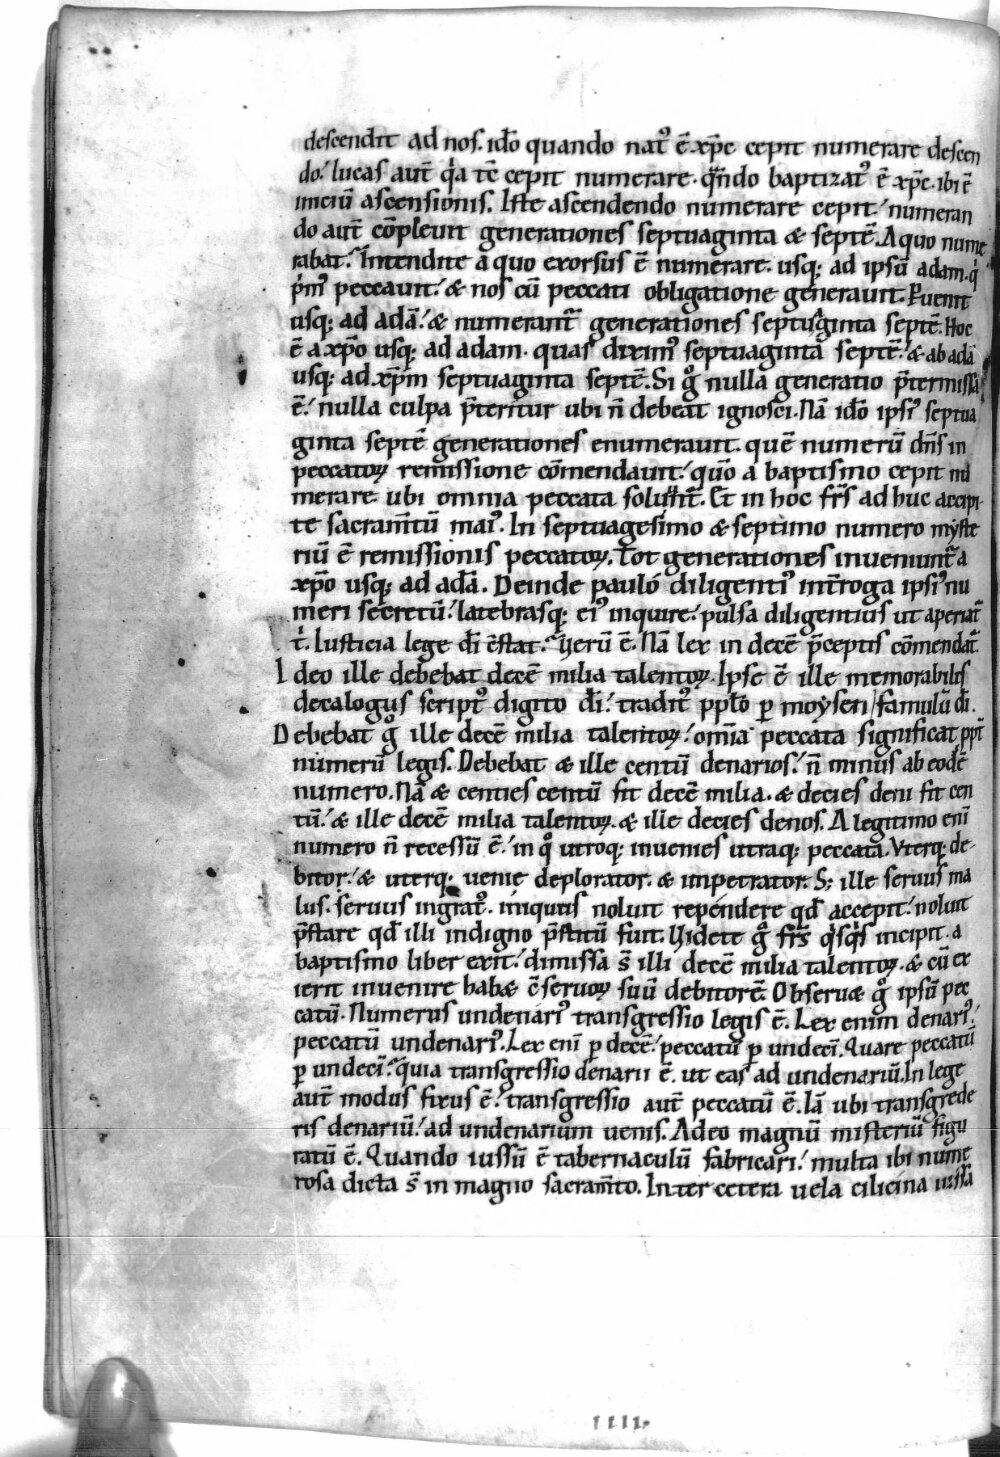 descendit ad nos. ido̅ quando nat᾿ e̅ xp̅c cepit numerare descen
do.᾿ lucas aut̅ qͥa tc̅ cepit numerare. qn̅do baptizat᾿ e̅ xp̅c. ibi e̅
iniciu̅ ascensionis. Iste ascendendo numerare cepit.᾿ numeran
do aut̅ co̅pleuit generationes septuaginta & septe̅. A quo nume
rabat.᾿ Intendite a quo exorsus e̅ numerare. usq; ad ipsu̅ adam. qͥ
pͥm᾿ peccauit.᾿ & nos cu̅ peccati obligatione generauit. P̲uenit
usq; ad ada̅.᾿ & numerant᷑ generationes septuaginta septe̅. Hoc
e̅ a xp̅o usq; ad adam. quas dixim᾿ septuaginta septe̅.᾿ & ab ada̅
usq; ad xp̅m septuaginta septe̅. Si gͦ nulla generatio p̅termissa
e̅.᾿ nulla culpa p̅teritur ubi n̅ debeat ignosci. Na̅ ido̅ ipsi᾿ septua
ginta septe̅ generationes enumerauit. que̅ numeru̅ dn̅s in
peccatoꝝ remissione co̅mendauit.᾿ quo̅ a baptismo cepit nu
merare ubi omnia peccata soluunt᷑. Et in hoc fr̅s ad huc accipi
te sacram̅tu̅ mai᾿. In septuagesimo & septimo numero myste
riu̅ e̅ remissionis peccatoꝝ. Tot generationes inueniunt᷑ a
xp̅o usq; ad ada̅. Deinde paulo diligenti᾿ int̅roga ipsi᾿ nu
meri secretu̅.᾿ latebrasq; ei᾿ inquire.᾿ pulsa diligentius ut aperiat᷑
tͥ. Iusticia lege di̅ co̅stat.᾿ Ueru̅ e̅. Na̅ lex in dece̅ p̅ceptis co̅mendat᷑.
Ideo ille debebat dece̅ milia talentoꝝ. Ipse e̅ ille memorabilis
decalogus script᾿ digito di̅.᾿ tradit᾿ pp̅lo p̲ moysen famulu̅ di̅.
Debebat gͦ ille dece̅ milia talentoꝝ.᾿ om̅ia peccata significat ppt̅
numeru̅ legis. Debebat & ille centu̅ denarios.᾿ n̅ minus ab eode̅
numero. Na̅ & centies centu̅ fit dece̅ milia. & decies deni fit cen
tu̅.᾿ & ille dece̅ milia talentoꝝ. & ille decies denos. A legitimo eni̅
numero n̅ recessu̅ e̅.᾿ in qͦ utroq; inuenies utraq; peccata. Vterq; de
bitor.᾿ & uterq; uenie deplorator. & impetrator. S; ille seruus ma
lus. seruus ingrat᾿. iniquus noluit rependere qd̅ accepit.᾿ noluit
p̅stare qd̅ illi indigno p̅stitu̅ fuit. Uidete gͦ fr̅s qͥsqͥs incipit. a
baptismo liber exit.᾿ dimissa s̅ illi dece̅ milia talentoꝝ. & cu̅ ex
ierit inuenire hab& co̅seruoꝝ suu̅ debitore̅. Obseru& gͦ ipsu̅ pec
catu̅. Numerus undenari᾿ transgressio legis e̅. Lex enim denari᾿.᾿
peccatu̅ undenari᾿. Lex eni̅ p̲ dece̅.᾿ peccatu̅ p̲ undeci̅. Quare peccatu̅
p̲ undeci̅.᾿ quia transgressio denarii e̅. ut eas ad undenariu̅. In lege
aut̅ modus fixus e̅.᾿ transgressio aut̅ peccatu̅ e̅. Ia̅ ubi transgrede
ris denariu̅.᾿ ad undenarium uenis. Adeo magnu̅ misteriu̅ figu
ratu̅ e̅. Quando iussu̅ e̅ tabernaculu̅ fabricari.᾿ multa ibi nume
rosa dicta s̅ in magno sacram̅to. Inter cetera uela cilicina iussa
IIII.